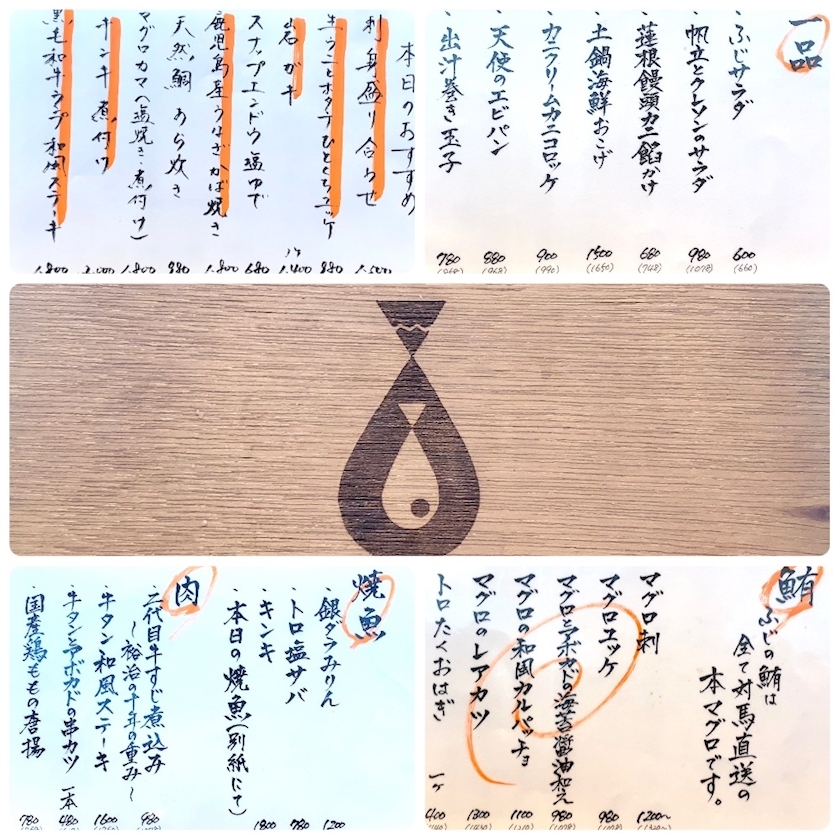 本日のおすすめ
刺身盛り合わせ
生ウニとホタテひとくちユッケ 880
岩ガキ 1ケ 1,400
スナップエンドウ塩ゆで 680
鹿児島産うなぎかば焼き 1,800
天然鯛 あら炊き 880
マグロカマ(塩焼き・煮付け) 1,800
キンキ煮付け 2,000
黒毛和牛ランプ和風ステーキ 1,800
一品
・ふじサラダ 600 (660)
・帆立とクレソンのサラダ 980 (1078)
・蓮根饅頭カニ餡かけ 680 (748)
・土鍋海鮮おこげ 1500 (1650)
・カニクリームカニコロッケ 900 (990)
・天使のエビパン 880 (968)
・出汁巻き玉子 780
焼魚
・銀ダラみりん 1200
・トロ塩サバ 780
・キンキ 1800
・本日の焼魚(別紙にて)
肉
・二代目牛すじ煮込み 980
～裕治の十年の重み～
・牛タン和風ステーキ 1600
・牛タンアボカドの串カツ 一本 480
・国産鶏ももの唐揚 780
鮪
ふじの鮪は
全て対馬直送の
本マグロです。
マグロ刺 1200～
マグロユッケ 980
マグロとアボカドの海苔醤油和え 980
マグロの和風カルパッチョ 1100
マグロのレアカツ 1300
トロたくおはぎ 一ヶ 400